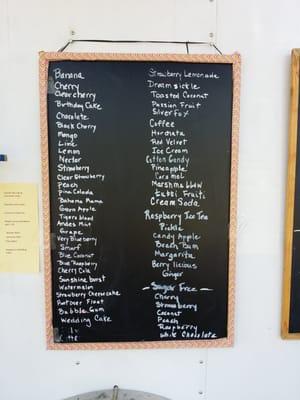 Banana
Cherry
Clear cherry
Birthday Cake
Chocolate
Black Cherry
Mango
Lime
Lemon
Nectar
Strawberry
Clear Strawberry
Peach
Pina Colada
Bahama Mama
Green Apple
Tigers blood
Andes Mint
Grape
Very Blueberry
Smurf
Blue Coconut
Blue Raspberry
Cherry Cola
Sunshine burst
Watermelon
Strawberry Cheesecake
Root beer Float
Bubble Gum
Wedding Cake
Strawberry Lemonade
Dreamsickle
Toasted Coconut
Passion Fruit
Silver Fox
Coffee
Horchata
Red Velvet
Ice Cream
Cotton Candy
Pineapple
Caramel
Marshmallow
Tutti Fruiti
Cream Soda
Raspberry Ice Tea
Pickle
Candy Apple
Beach Bum
Margarita
Berry licious
Ginger
- Sugar Free -
Cherry
Strawberry
Coconut
Peach
Raspberry
White Chocolate